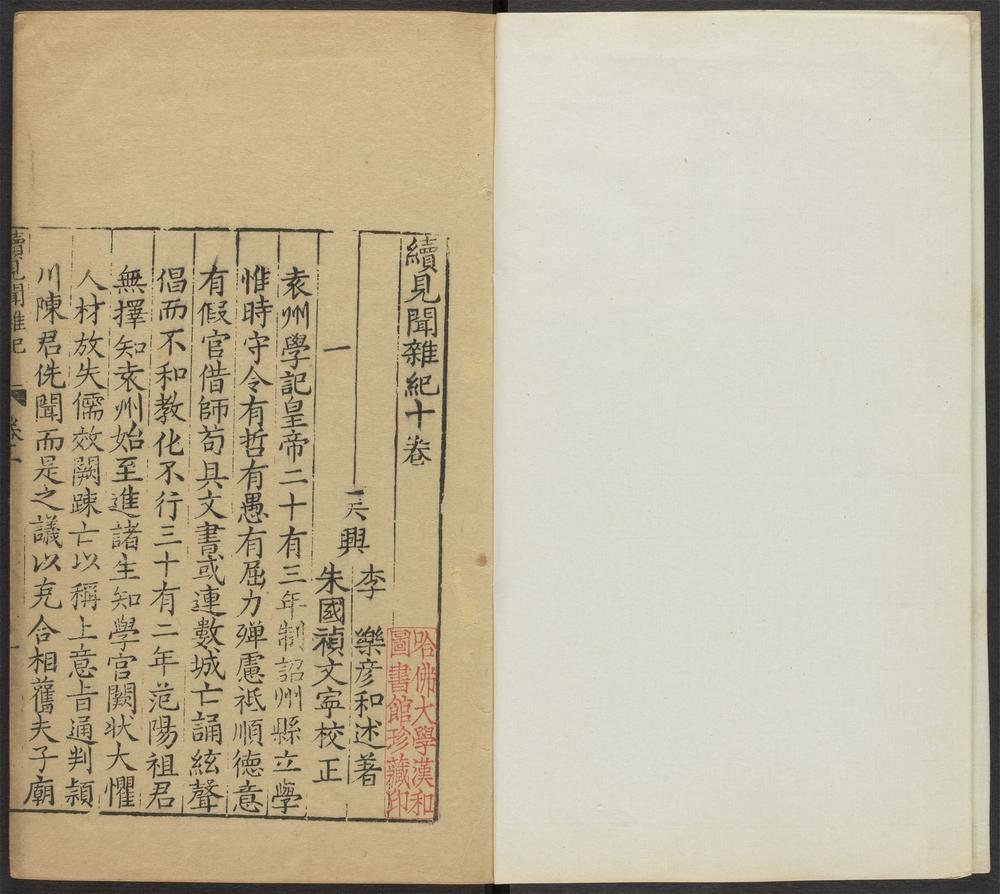 續見聞雜紀十卷
吳興
李樂彥和述著
朱國禎文寧校正
一
袁州學記皇帝二十有三年制詔州縣立學
惟時守令有哲有愚有屈力殫慮祗順德意
有假官借師苟具文書或連數城亡誦絃聲
倡而不和教化不行三十有二年范陽祖君
無擇知袁州始至進諸生知學宮闕狀大懼
人材放失儒效闕踈亡以稱上意旨通判頴
川陳君侁聞而是之議以克合相舊夫子廟
續見聞雜紀
卷二
一
哈佛大學漢和
圖書館珍藏印